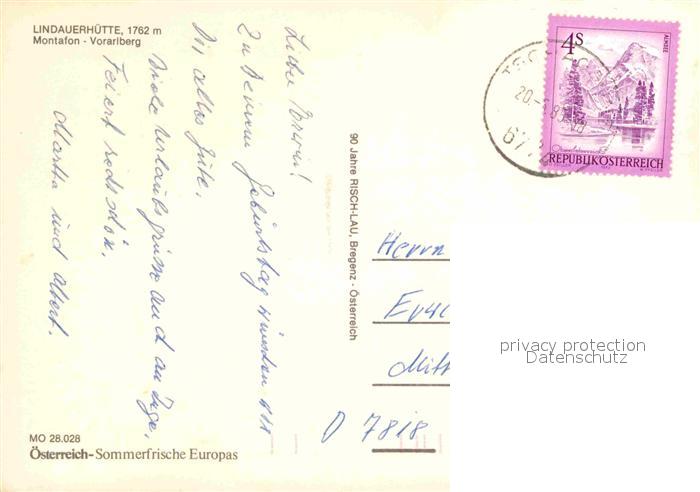 LINDAUERHÜTTE, 1762 m
Montafon - Vorarlberg
Lieber Erwin!
Zu Deinem Geburtstag wünschen wir
Dir alles Gute.
Viele Urlaubsgrüsse auch an Inge.
Feiert recht schön.
Martha und Albert.
MO 28.028
Österreich-Sommerfrische Europas
90 Jahre RISCH-LAU, Bregenz - Österreich
4S
ALMSEE
REPUBLIK ÖSTERREICH
Herrn
Erwi
Mitt
D 7818
privacy protection
Datenschutz